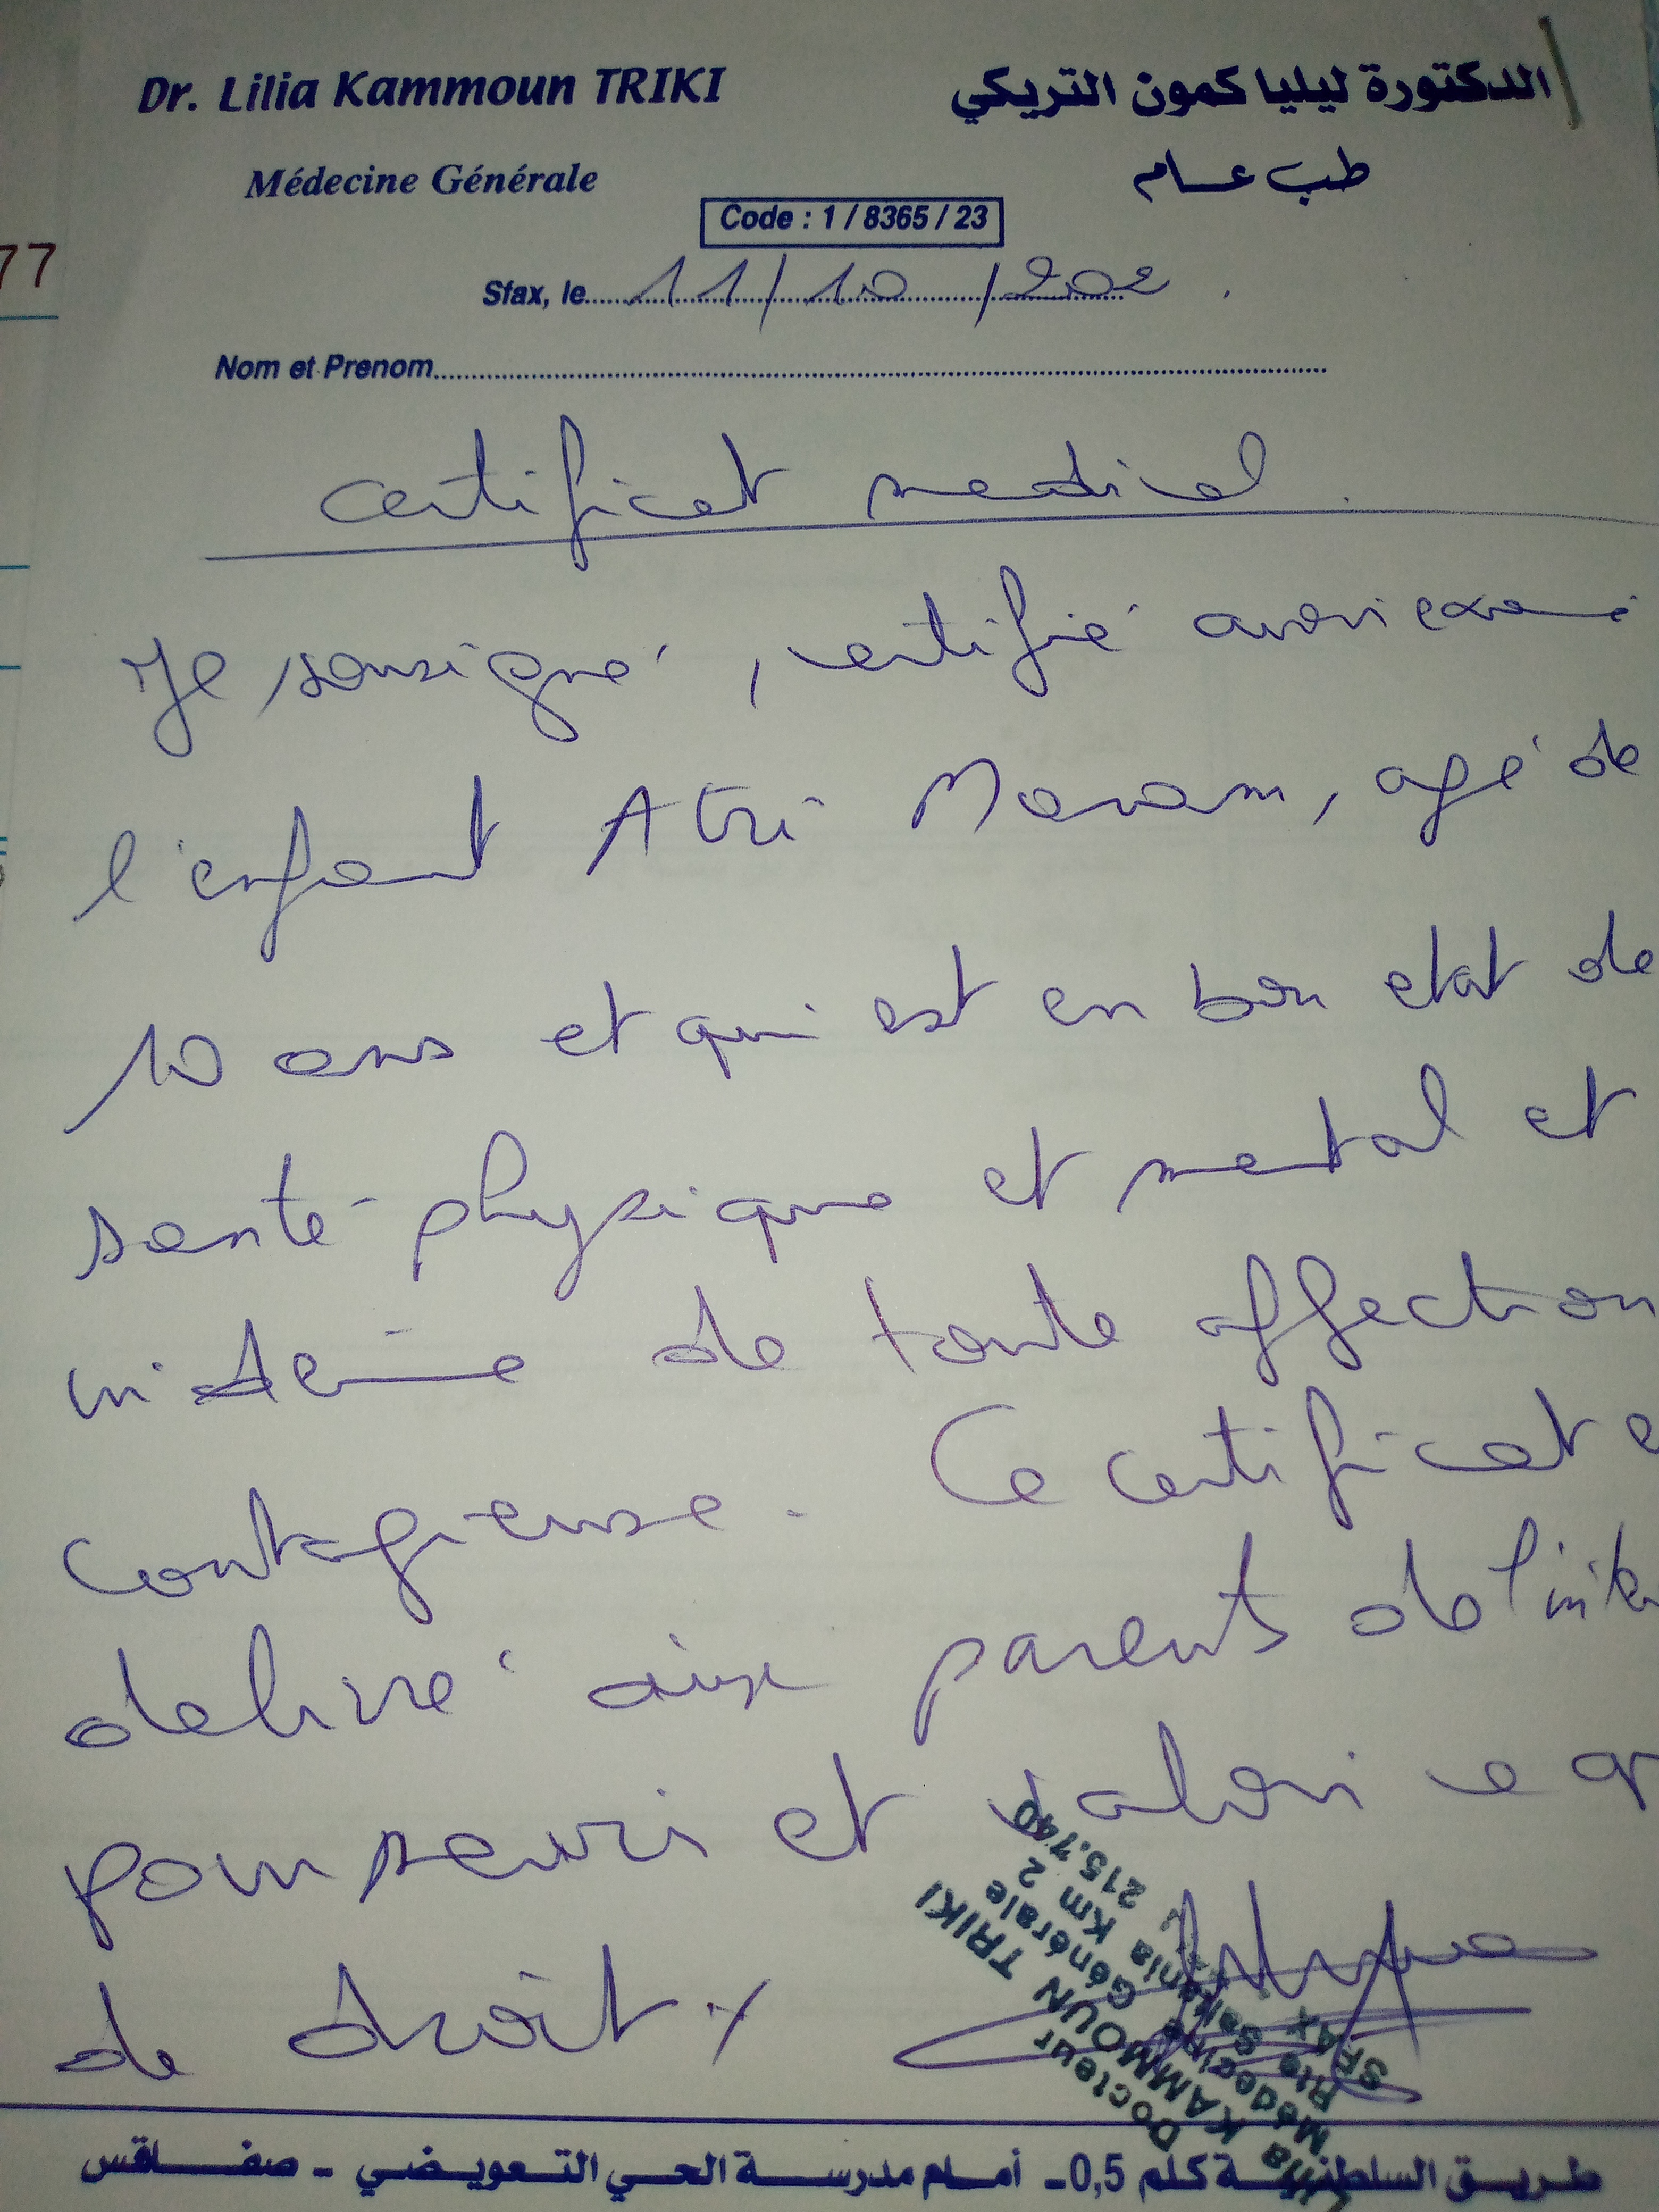 Dr. Lilia Kammoun TRIKI
الدكتورة ليليا كمون التريكي
Médecine Générale
طب عام
Code : 1 / 8365 / 23
77
Sfax, le 11/10/202
Nom et Prenom
certificat medical.
Je sousigné, certifié avoir exa
l'enfant Atri Maram, agé de
10 ans et qui est en bon etat de
santé physique et mental et
de toute affection
contagieuse. Ce certificat e
delivré aux parents de l'inte
pour servir et valoir ce q
de droit
Docteur
Lilia KAMMOUN TRIKI
Médecine Générale
Rte Saltania Km 2
SFAX 215.740
طريق السلطنية كلم 0,5 - أمام مدرسة الحي التعويضي - صفاقس